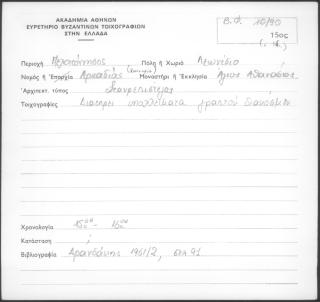 ΑΚΑΔΗΜΙΑ ΑΘΗΝΩΝ
ΕΥΡΕΤΗΡΙΟ ΒΥΖΑΝΤΙΝΩΝ ΤΟΙΧΟΓΡΑΦΙΩΝ
ΣΤΗΝ ΕΛΛΑΔΑ
10/90
15ος
Περιοχή Πελοπόννησος Πόλη ή Χωριό Λεωνίδιο
Νομός ή Επαρχία Αρκαδίας Μοναστήρι ή Εκκλησία Άγιος Αθανάσιος
Αρχιτεκτ. τύπος Σταυρεπίστεγος
Τοιχογραφίες Σώζονται υπολείμματα γραπτού διακόσμου
Χρονολογία 15ος - 16ος
Κατάσταση ;
Βιβλιογραφία Δρανδάκης 1961/2, σελ 91